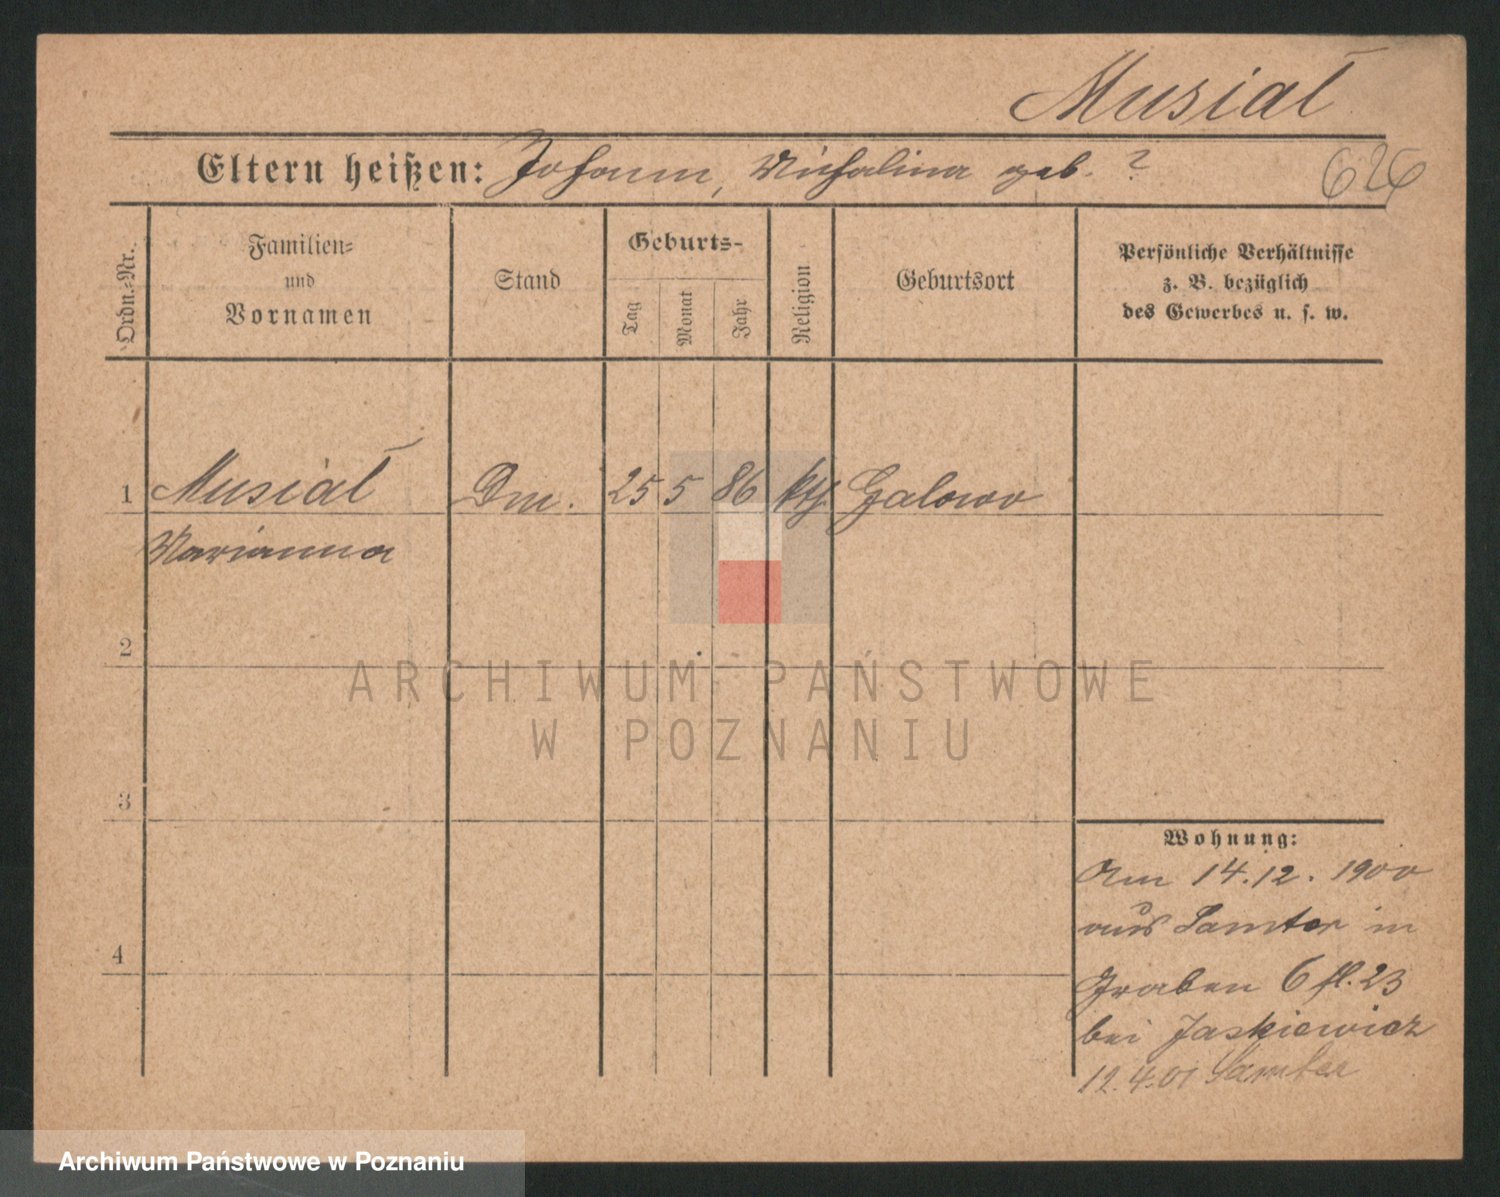 Musiał
Eltern heißen: Johann, Michalina geb. ?
626
Ordn.-Nr.
Familien-
und
Vornamen
Stand
Geburts-
Tag
Monat
Jahr
Religion
Geburtsort
Persönliche Verhältnisse
z. B. bezüglich
des Gewerbes u. s. w.
1 Musiał Dm. 25 5 86 kth Galowo
Marianna
2
3
4
Wohnung:
Am 14.12.1900
aus Samter in
Graben 6 fl. 23
bei Jaskiewicz
12.4.01 Samter
ARCHIWUM PAŃSTWOWE
W POZNANIU
Archiwum Państwowe w Poznaniu